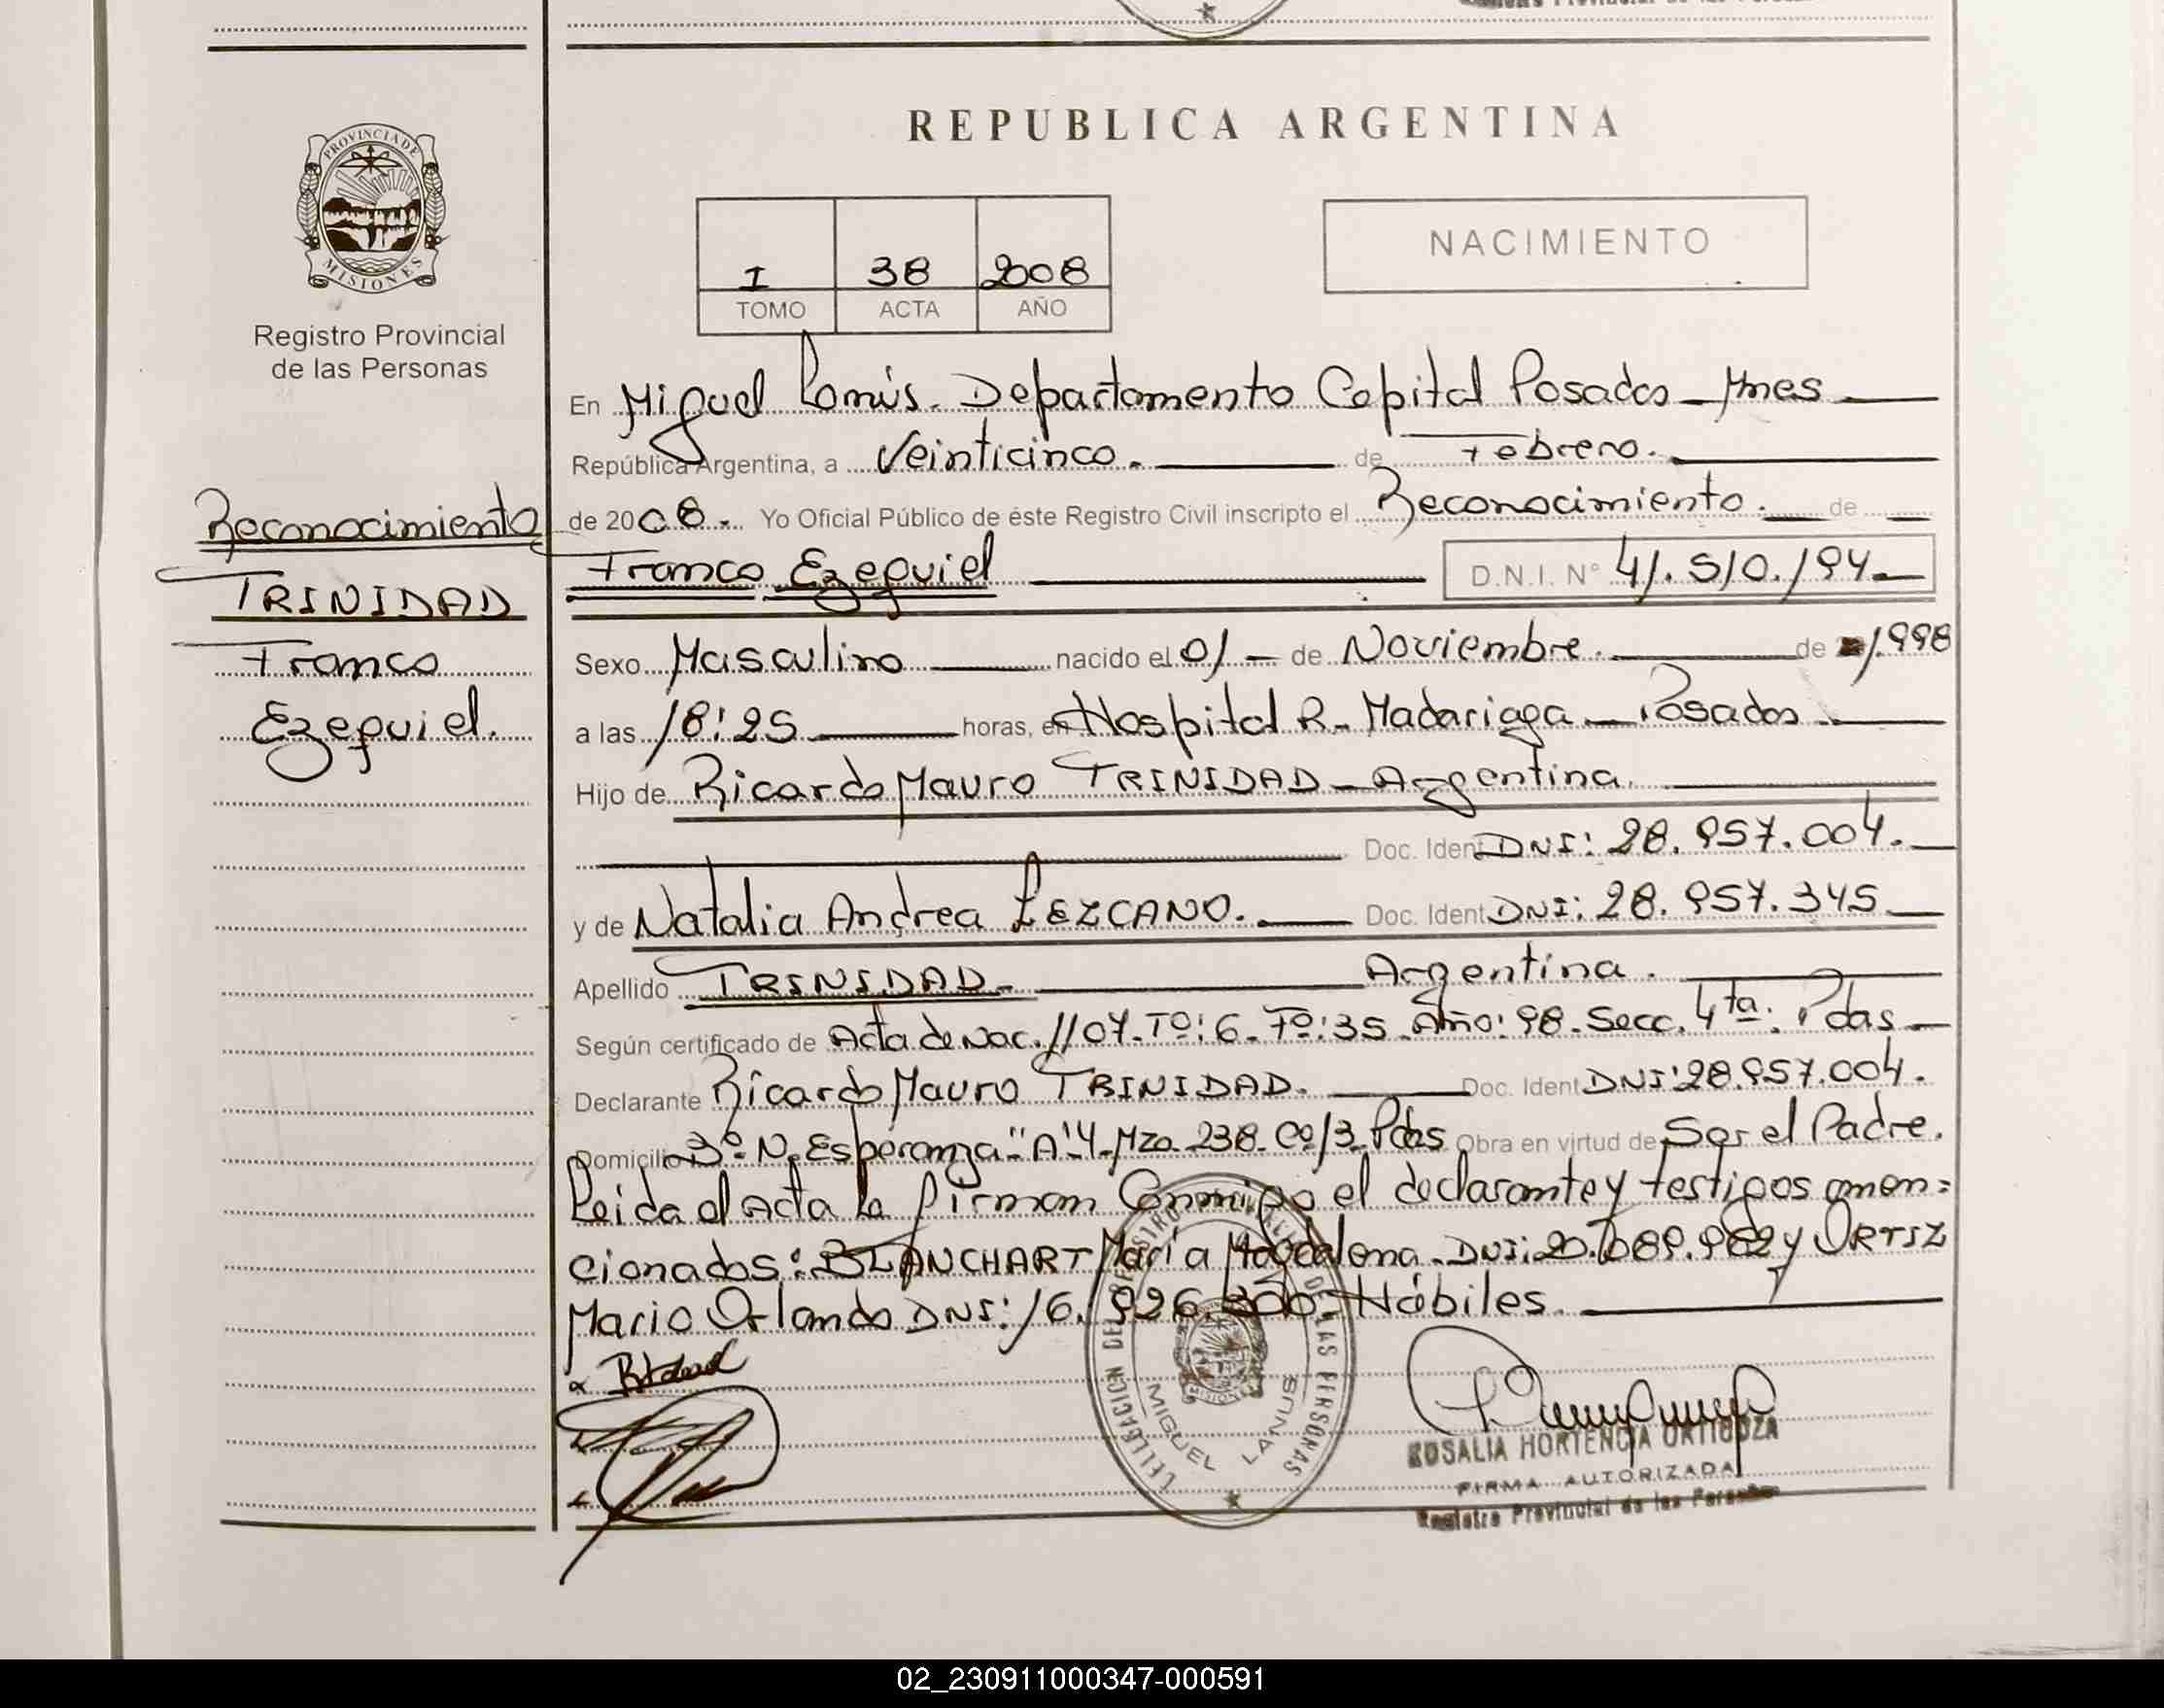 REPUBLICA ARGENTINA
PROVINCIA DE
MISIONES
Registro Provincial
de las Personas
I 38 2008
TOMO ACTA AÑO
NACIMIENTO
Reconocimiento
TRINIDAD
Franco
Ezequiel.
En Miguel Lanús. Departamento Capital Posadas - Mnes
República Argentina, a Veinticinco. de Febrero.
de 2008. Yo Oficial Público de éste Registro Civil inscripto el Reconocimiento. de
Franco Ezequiel D.N.I. N° 41.510.194
Sexo Masculino nacido el 01 - de Noviembre. de 1.998
a las 18:25 horas, en Hospital R. Madariaga - Posadas
Hijo de Ricardo Mauro TRINIDAD - Argentina.
Doc. Ident DNI: 28.957.004.
y de Natalia Andrea LEZCANO. Doc. Ident DNI: 28.957.345
Apellido TRINIDAD - Argentina.
Según certificado de Acta de Nac. 1107- Tº: 6- Fº: 35- Año: 98- Secc. 4ta. Pdas
Declarante Ricardo Mauro TRINIDAD. Doc. Ident DNI: 28.957.004.
Domicilio Bº N. Esperanza "A" 4- Mza. 238- Cº 13- Pdas Obra en virtud de Ser el Padre.
Leida el Acta la firman Conmigo el declarante y testigos amen=
cionados: BLANCHART María Magdalena. DNI: 20. y ORTIZ
Mario Orlando DNI: 16.926.300- Hábiles.
DELEGACION DEL REGISTRO PROVINCIAL DE LAS PERSONAS
MISIONES
MIGUEL LANUS
ROSALIA HORTENCIA ORTIGOZA
FIRMA AUTORIZADA
Registro Provincial de las Personas
02_230911000347-000591